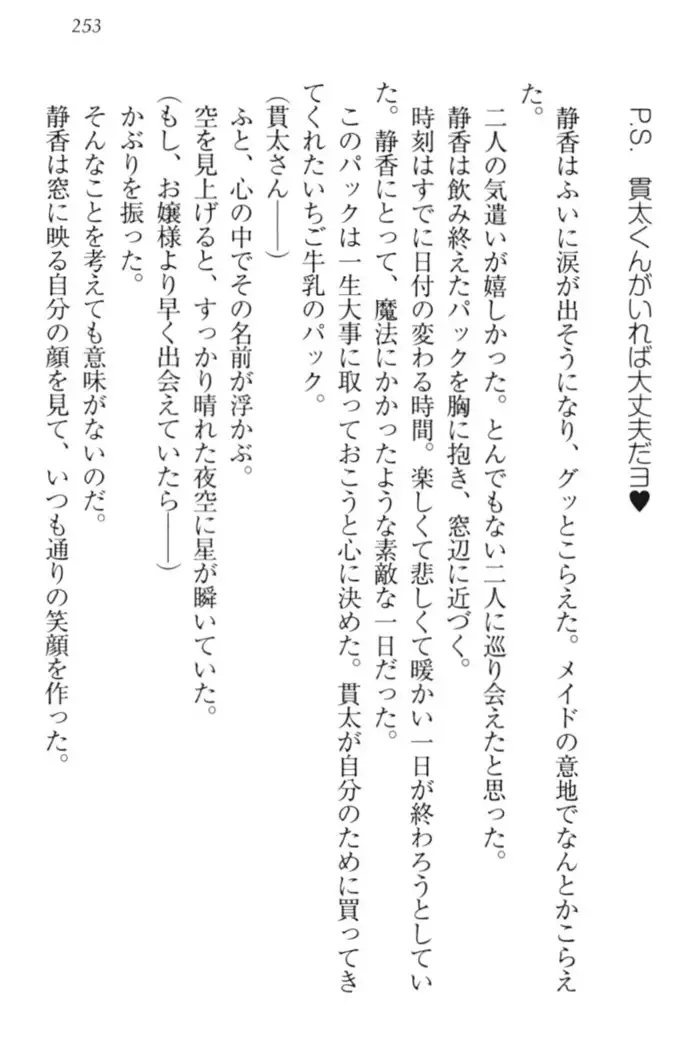 253
P.S.　貫太くんがいれば大丈夫だヨ♥
　静香はふいに涙が出そうになり、グッとこらえた。メイドの意地でなんとかこらえ
た。
　二人の気遣いが嬉しかった。とんでもない二人に巡り会えたと思った。
　静香は飲み終えたパックを胸に抱き、窓辺に近づく。
　時刻はすでに日付の変わる時間。楽しくて悲しくて暖かい一日が終わろうとしてい
た。静香にとって、魔法にかかったような素敵な一日だった。
　このパックは一生大事に取っておこうと心に決めた。貫太が自分のために買ってき
てくれたいちご牛乳のパック。
（貫太さん――）
　ふと、心の中でその名前が浮かぶ。
　空を見上げると、すっかり晴れた夜空に星が瞬いていた。
（もし、お嬢様より早く出会えていたら――）
　かぶりを振った。
　そんなことを考えても意味がないのだ。
　静香は窓に映る自分の顔を見て、いつも通りの笑顔を作った。